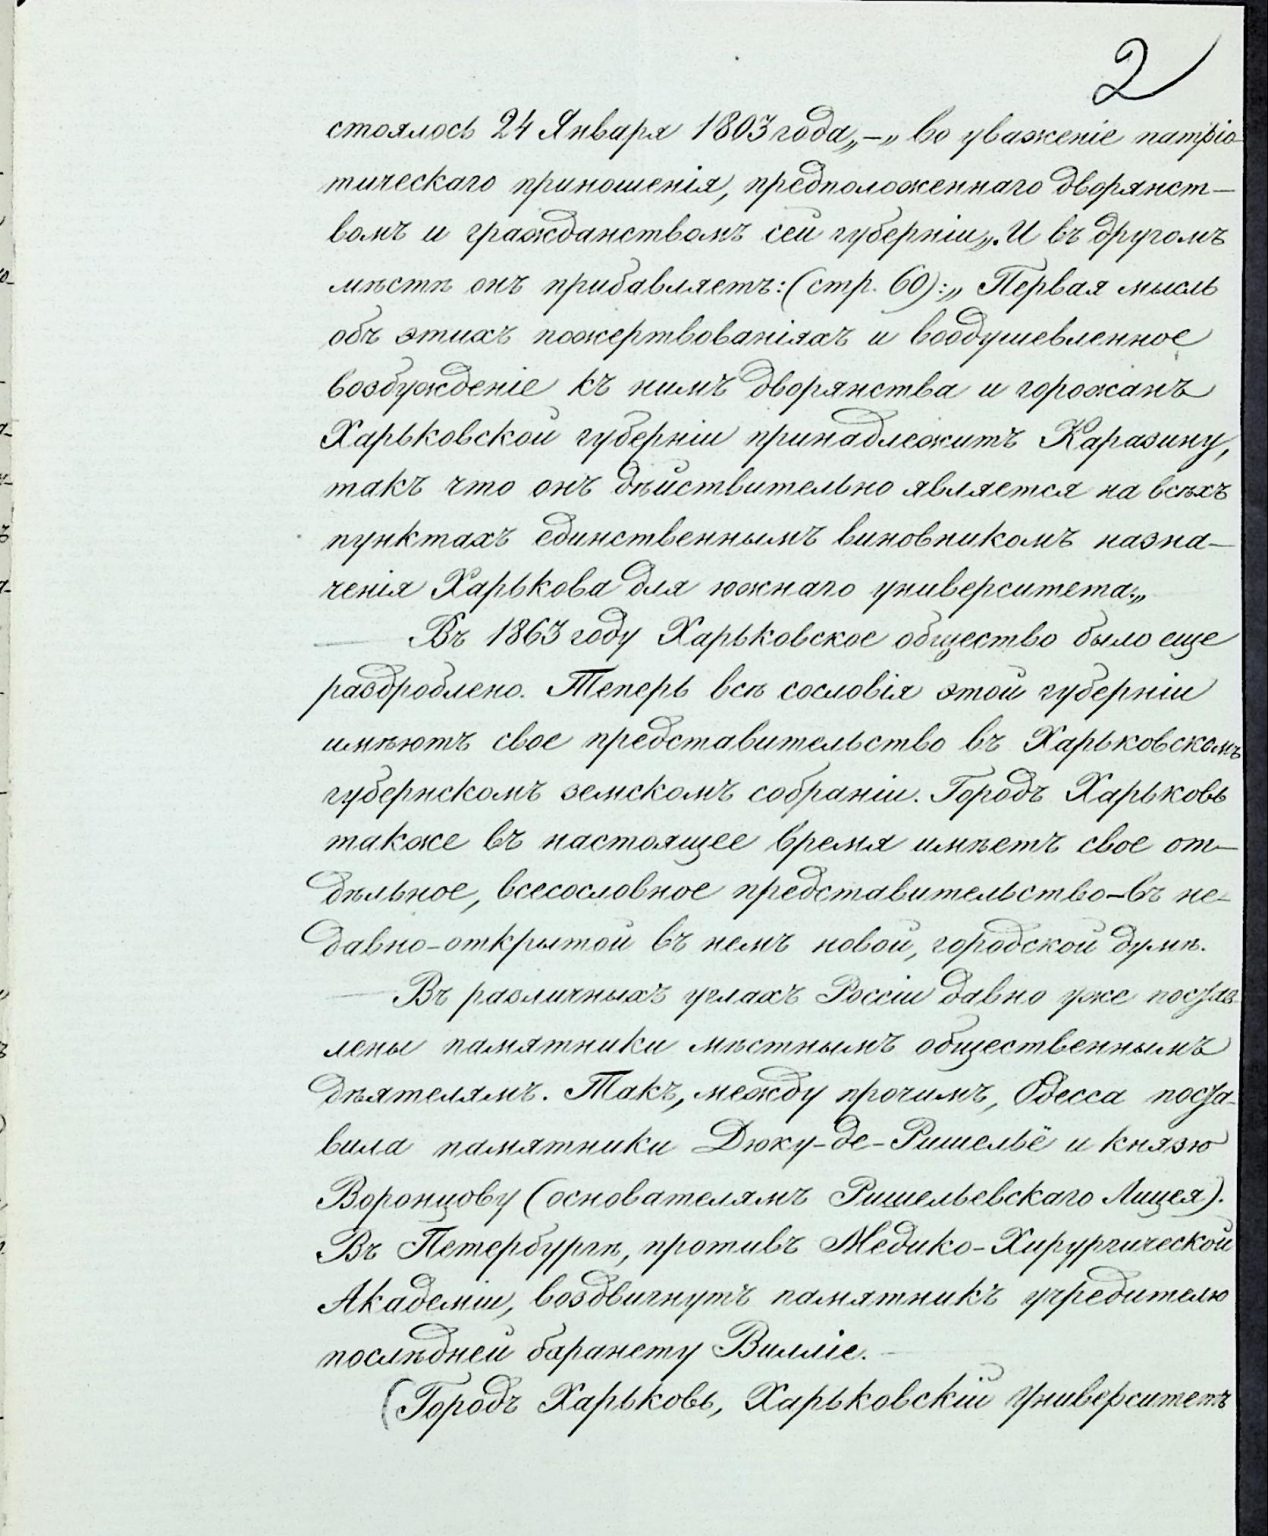 2
стоялось 24 Января 1803 года„—„ во уваженіе патріо-
тическаго приношенія, предположеннаго дворянст-
вомъ и гражданствомъ сей губерніи„. И въ другомъ
мѣстѣ онъ прибавляетъ: (стр. 60):„ Первая мысль
объ этихъ пожертвованіяхъ и воодушевленное
возбужденіе къ нимъ дворянства и горожанъ
Харьковской губерніи принадлежитъ Каразину,
такъ что онъ дѣйствительно является на всѣхъ
пунктахъ единственнымъ виновникомъ назна-
ченія Харькова для южнаго университета„
Въ 1863 году Харьковское общество было еще
раздроблено. Теперь всѣ сословія этой губерніи
имѣютъ свое представительство въ Харьковскомъ
губернскомъ земскомъ собраніи. Городъ Харьковъ
также въ настоящее время имѣетъ свое от-
дѣльное, всесословное представительство-въ не-
давно-открытой въ немъ новой, городской думѣ.
Въ различныхъ углахъ Россіи давно уже постав-
лены памятники мѣстнымъ общественнымъ
дѣятелямъ. Такъ, между прочимъ, Одесса поста-
вила памятники Дюку-де-Ришельё и князю
Воронцову (основателямъ Ришельевскаго Лицея).
Въ Петербургѣ, противъ Медико-Хирургической
Академіи, воздвигнутъ памятникъ учредителю
послѣдней баранету Вилліе.
(Городъ Харьковъ, Харьковскій Университетъ